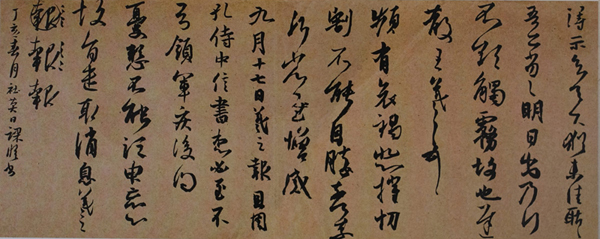 得示知足下猶未佳耿耿
吾亦劣劣明日出乃行
不欲觸霧故也遲
散王羲之頓首
頻有哀禍悲摧切
割不能自勝奈何奈何
省慰增感
九月十七日羲之報且因
孔侍中信書想必至不
知領軍疾後問
憂懸不能須臾忘心
故旨遣取消息羲之
報
丁亥春月